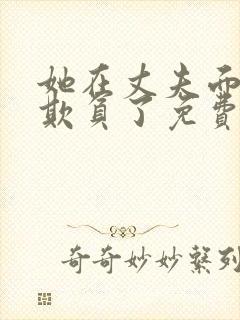 她在丈夫而
欺负了免费
奇奇妙妙系列